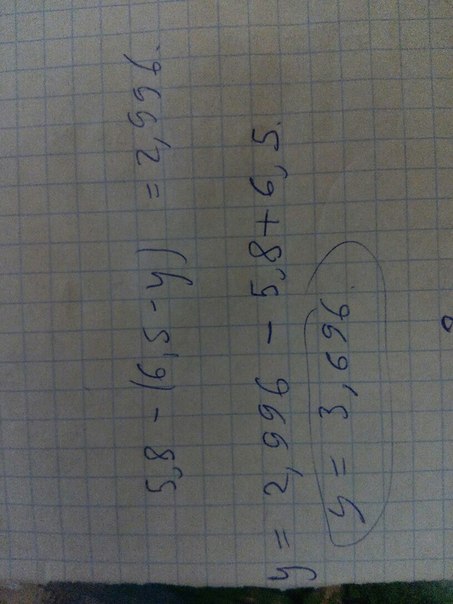 5,8 - (6,5 - y) = 2,996.
y = 2,996 - 5,8 + 6,5.
y = 3,696.